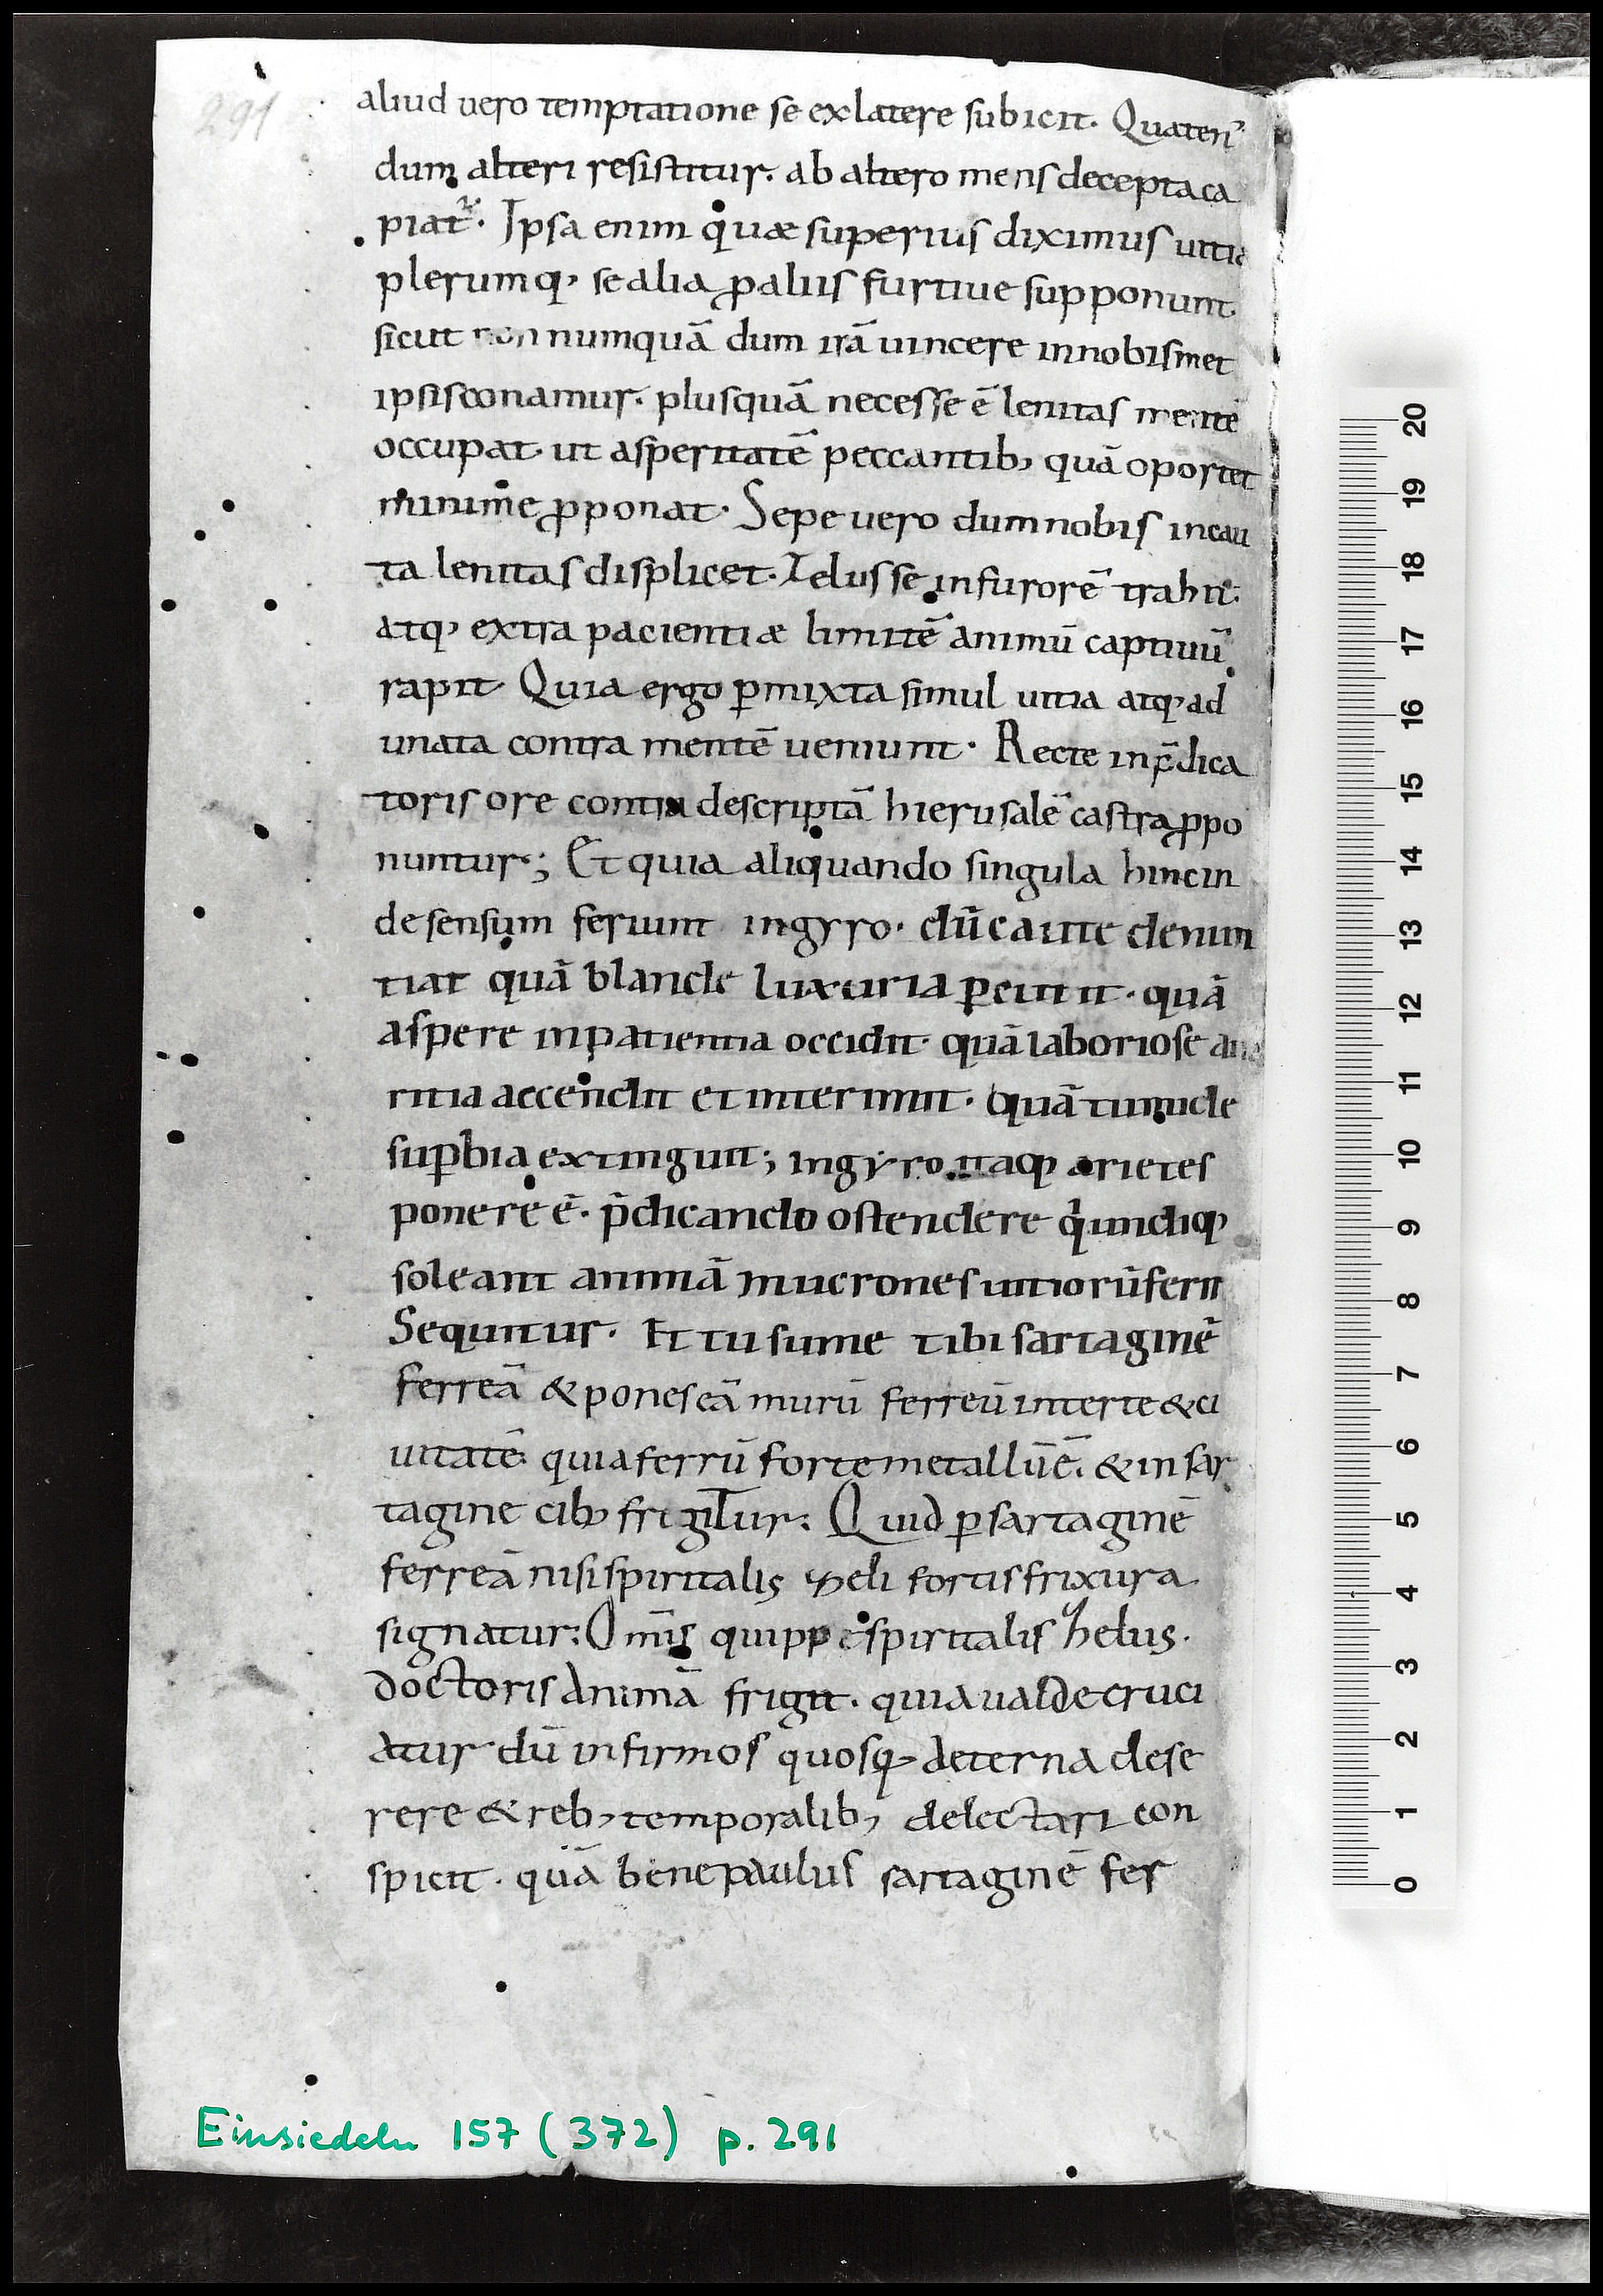 291
aliud uero temptatione se ex latere subicit. Quaten᷒
dum alteri resistitur. ab altero mens decepta ca
piat᷒. Ipsa enim quae superius diximus uitia
plerumq; se alia ꝓ aliis furtiue supponunt.
sicut non numquā dum irā uincere in nobismet
ipsis conamur. plusquā necesse ē lenitas mentē
occupat. ut asperitatē peccantib; quā oportet
minime ꝓponat. Sepe uero dum nobis incau
ta lenitas displicet. Zelus se in furorē trahit.
atq; extra pacientiae limitē animū captiuū
rapit. Quia ergo ꝑmixta simul uitia atq; ad
unata contra mentē ueniunt. Recte in p̄dica
toris ore contra descriptā hierusalē castra ꝓpo
nuntur.; Et quia aliquando singula hinc in
de sensum feriunt in gyro. dū caute denun
tiat quā blande luxuria ꝑcutit. quā
aspere inpatientia occidit. quā laboriose aua
ritia accendit et interimit. quā tumide
suꝑbia extinguit; in gyro itaq; arietes
ponere ē. p̄dicando ostendere q̄ undiq;
soleant animā mucrones uitiorū ferir
Sequitur. Et tu sume tibi sartaginē
ferreā & pones eā murū ferreū inter te & ci
uitatē. quia ferrū forte metallū ē. & in sar
tagine cib; frigitur. Quid ꝑ sartaginē
ferreā nisi spiritalis zeli fortis frixura
signatur; Om̄is quippe spiritalis zelus.
doctoris animā frigit. quia ualde cruci
atur dū infirmos quosq; aeterna dese
rere & reb; temporalib; delectari con
spicit. quā bene paulus sartaginē fer
Einsiedeln 157 (372) p. 291
20
19
18
17
16
15
14
13
12
11
10
9
8
7
6
5
4
3
2
1
0